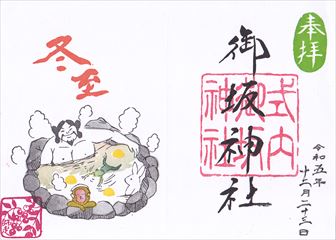 奉拝
御坂神社
式内
御坂
神社
令和五年
十二月二十三日
冬至